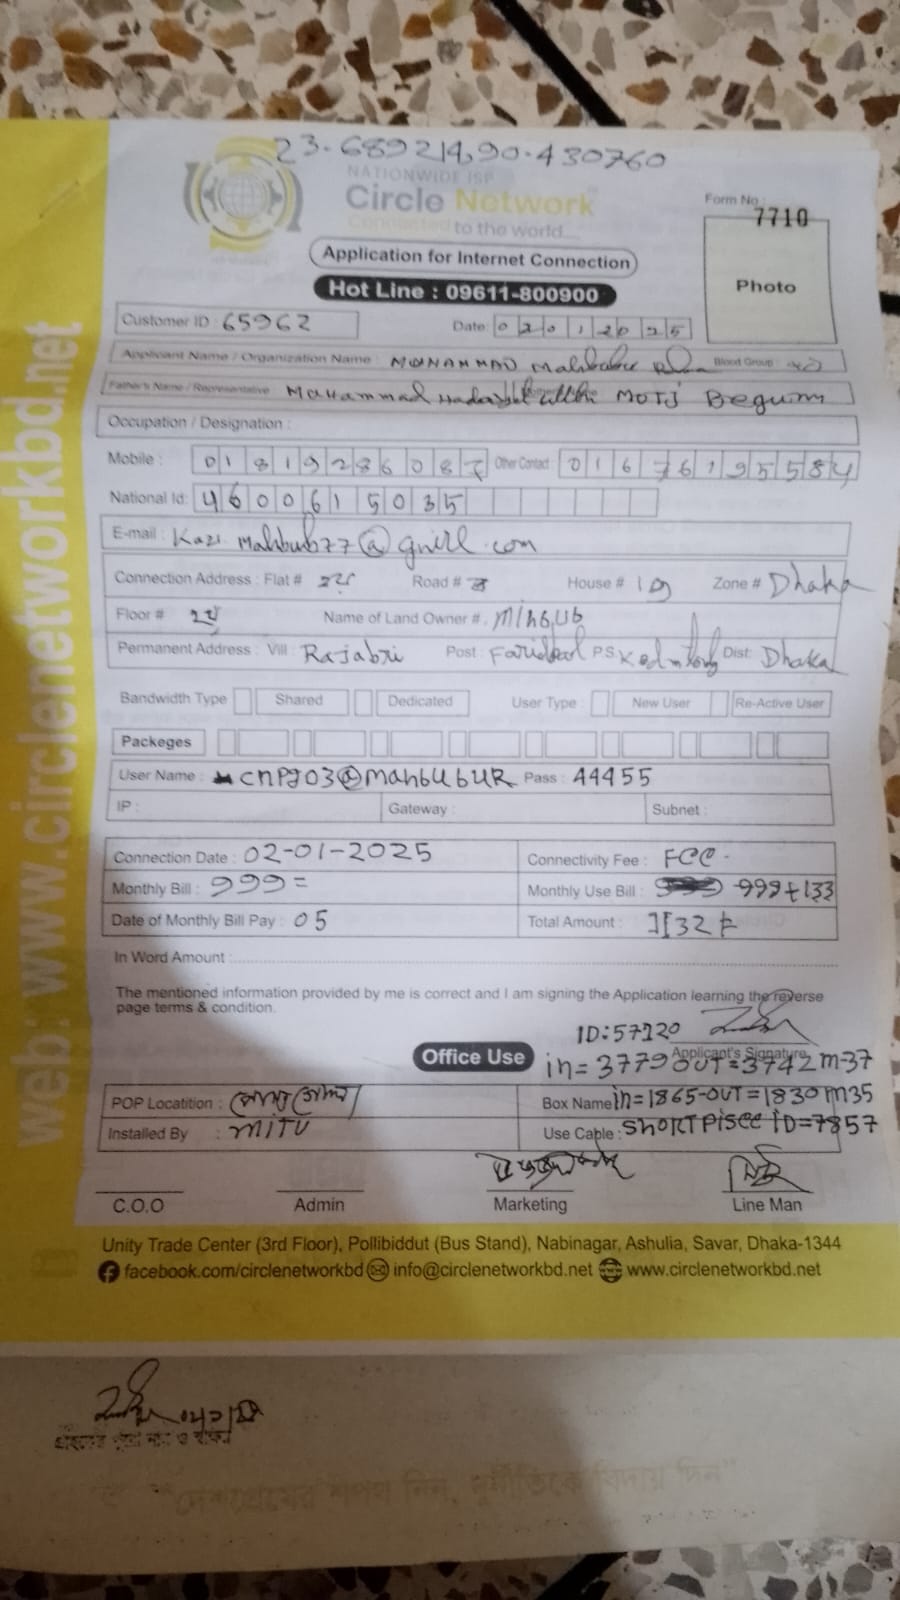 23.689214,90.430760
NATIONWIDE ISP
Circle Network
Connected to the world...
Form No.: 7710
Application for Internet Connection
Photo
Hot Line : 09611-800900
Customer ID : 65962
Date: 02012025
Applicant Name / Organization Name : MOHAMMAD Blood Group :
Father's Name / Representative : Mohammad MOTJ Begum
Occupation / Designation :
Mobile : Other Contact : 01676195584
National Id: 4600615035
E-mail : Kazi.Mahbub77@
Connection Address : Flat # Road # House # Zone # Dhaka
Floor # Name of Land Owner #. M/hbUb
Permanent Address : Vill : Rajabri Post : P.S. Dist: Dhaka
Bandwidth Type Shared Dedicated User Type : New User Re-Active User
Packeges
User Name : CNPJ03@MAHBUBUR Pass : 44455
IP : Gateway : Subnet :
Connection Date : 02-01-2025 Connectivity Fee :
Monthly Bill : 999= Monthly Use Bill : 999+133
Date of Monthly Bill Pay : 05 Total Amount : 1132
In Word Amount :
The mentioned information provided by me is correct and I am signing the Application learning the reverse
page terms & condition.
ID:57120
Applicant's Signature
Office Use in=3779 OUT=3742 m-37
POP Locatition : Box Name in=1865-OUT=1830 m35
Installed By : MITU Use Cable : SHORT PISCE ID=7857
C.O.O Admin Marketing Line Man
Unity Trade Center (3rd Floor), Pollibiddut (Bus Stand), Nabinagar, Ashulia, Savar, Dhaka-1344
facebook.com/circlenetworkbd info@circlenetworkbd.net www.circlenetworkbd.net
web: www.circlenetworkbd.net
"দেশপ্রেমের শপথ নিন, দুর্নীতিকে বিদায় দিন"